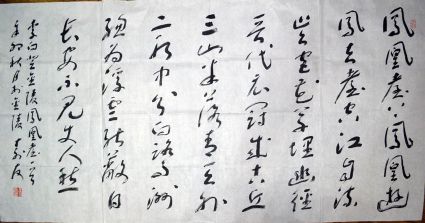 鳳凰臺上鳳凰遊
鳳去臺空江自流
吳宮花草埋幽徑
晉代衣冠成古丘
三山半落青天外
二水中分白鷺洲
總為浮雲能蔽日
長安不見使人愁
李白登金陵鳳凰臺
秋月於金陵